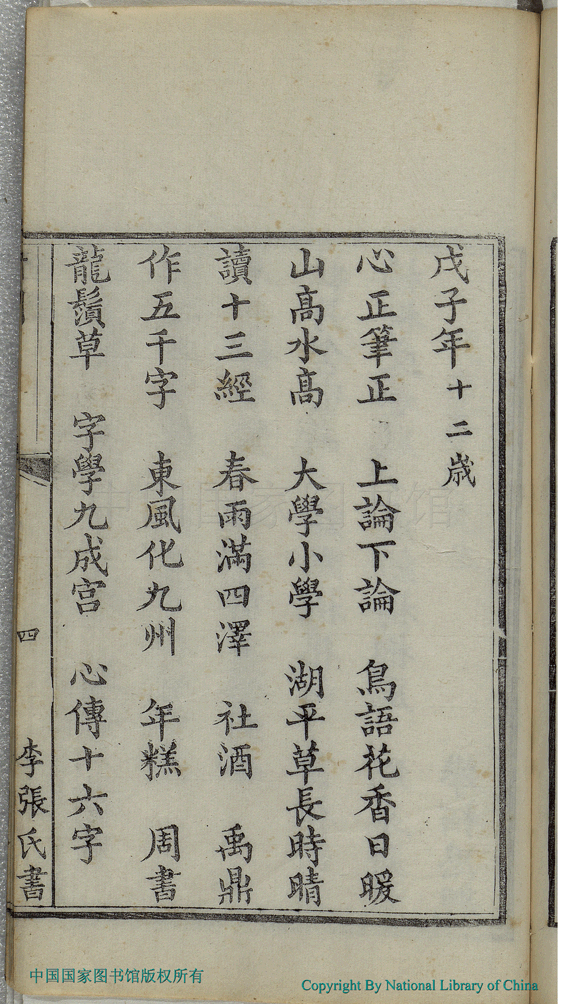 戊子年十二歲
心正筆正　上論下論　鳥語花香日暖
山高水高　大學小學　湖平草長時晴
讀十三經　春雨滿四澤　社酒　禹鼎
作五千字　東風化九州　年糕　周書
龍鬚草　字學九成宮　心傳十六字
四
李張氏書
中国国家图书馆
中国国家图书馆版权所有
Copyright By National Library of China